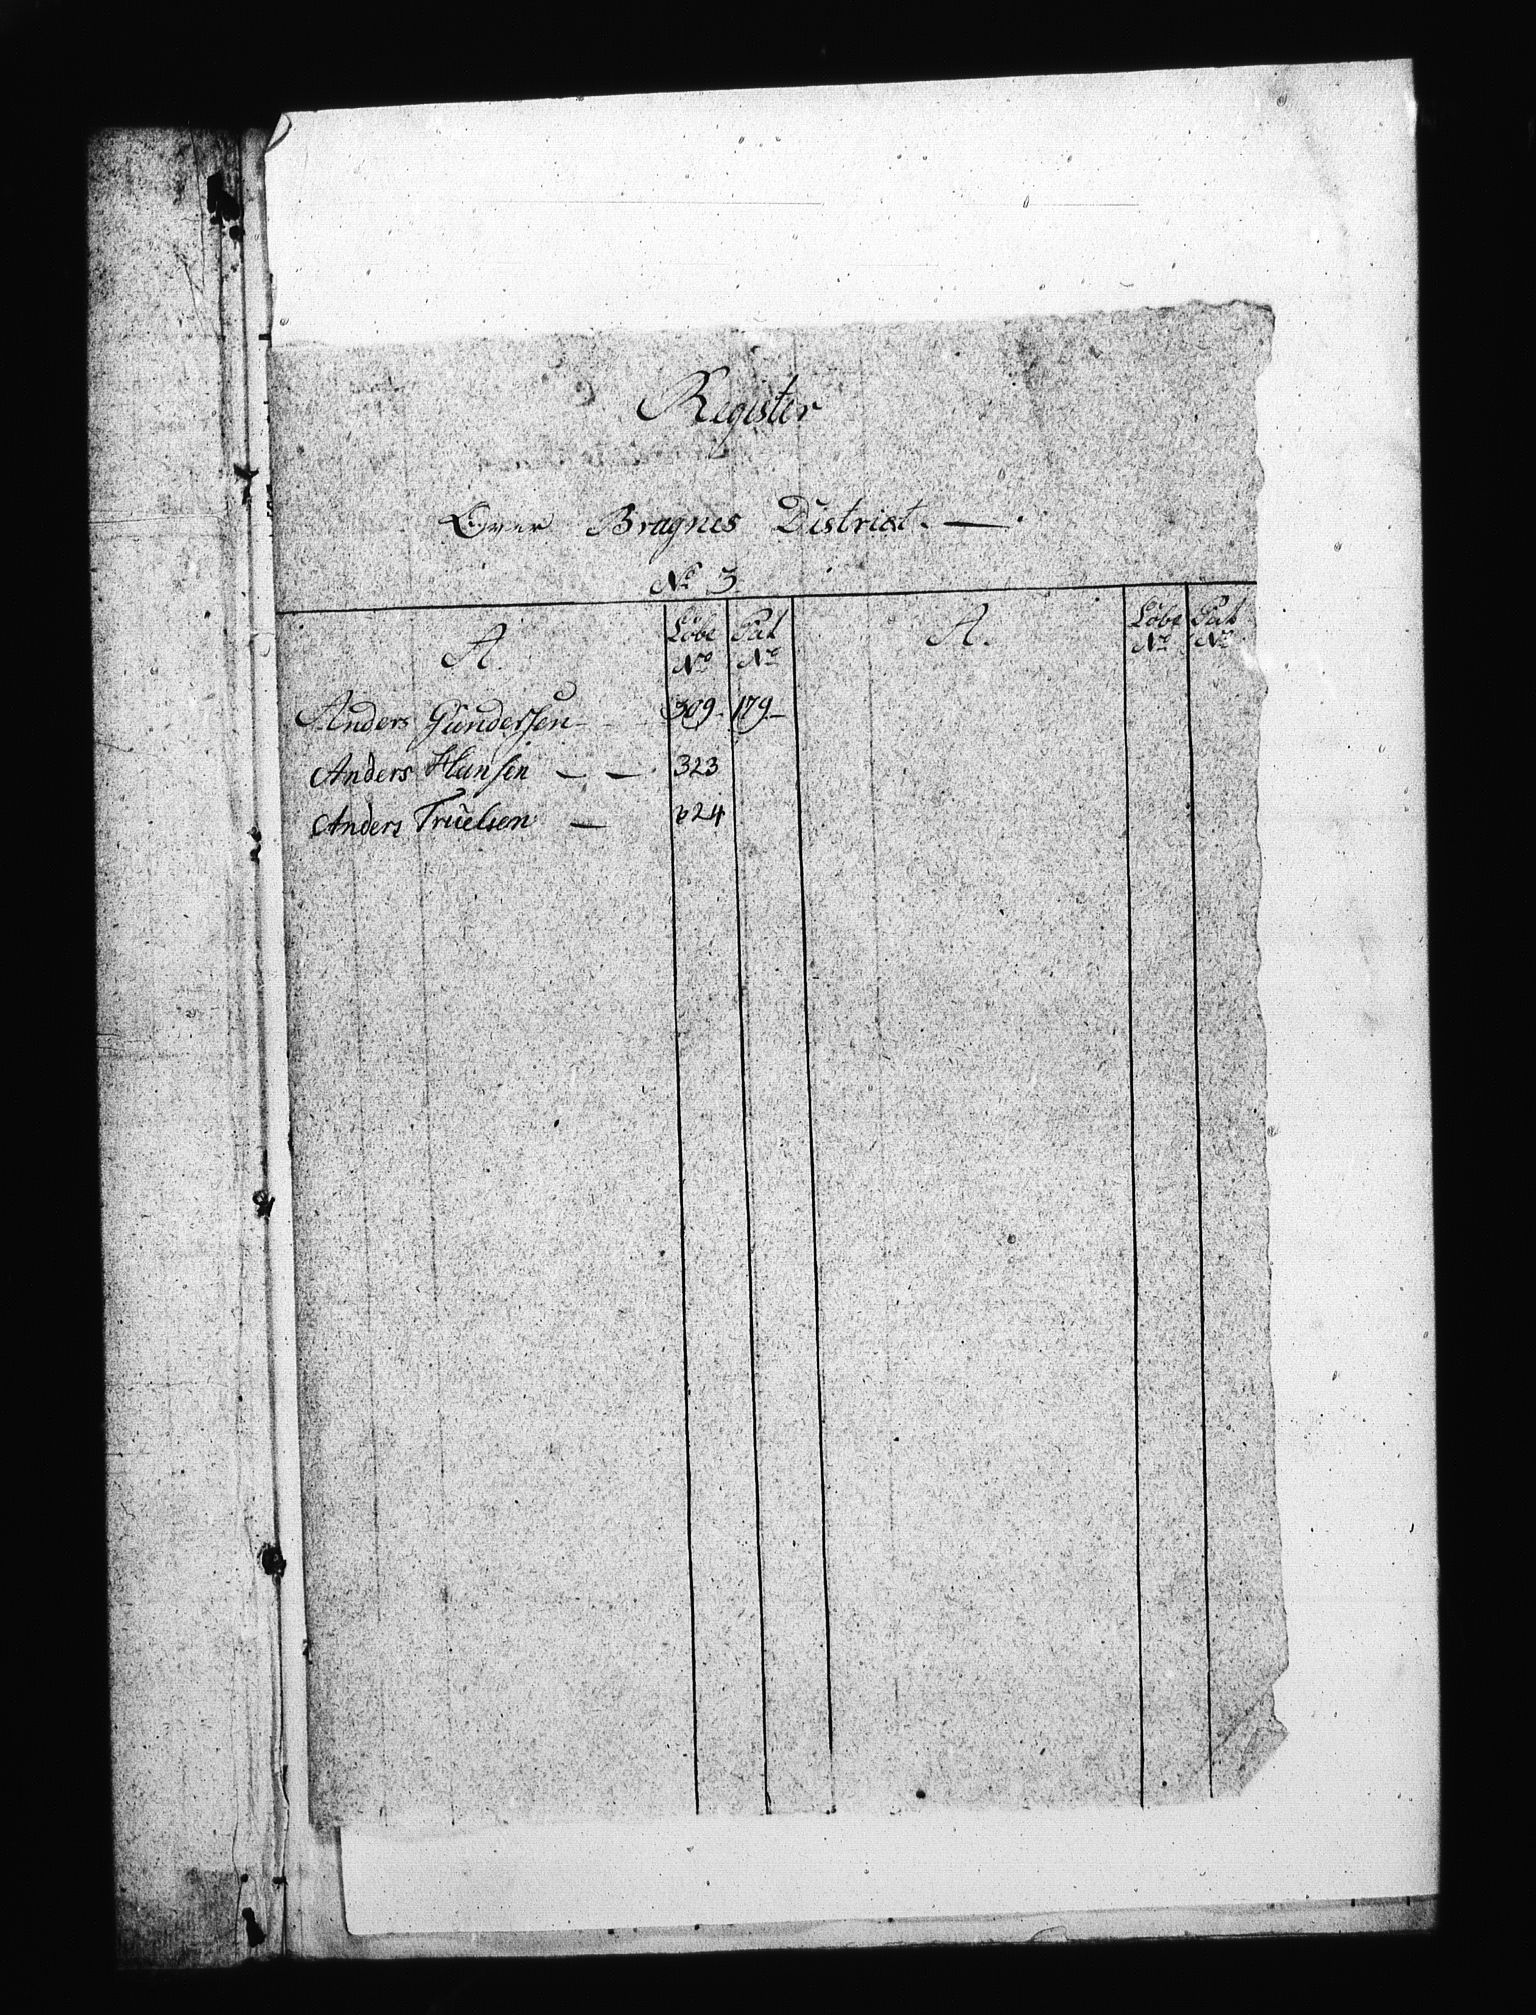 Register
Over Bragnes District. —
No 3
A. Löbe No Pat No A. Löbe No Pat No
Anders Gundersen - 309 - 179 -
Anders Hansen — — 323
Anders Truelsen — 624